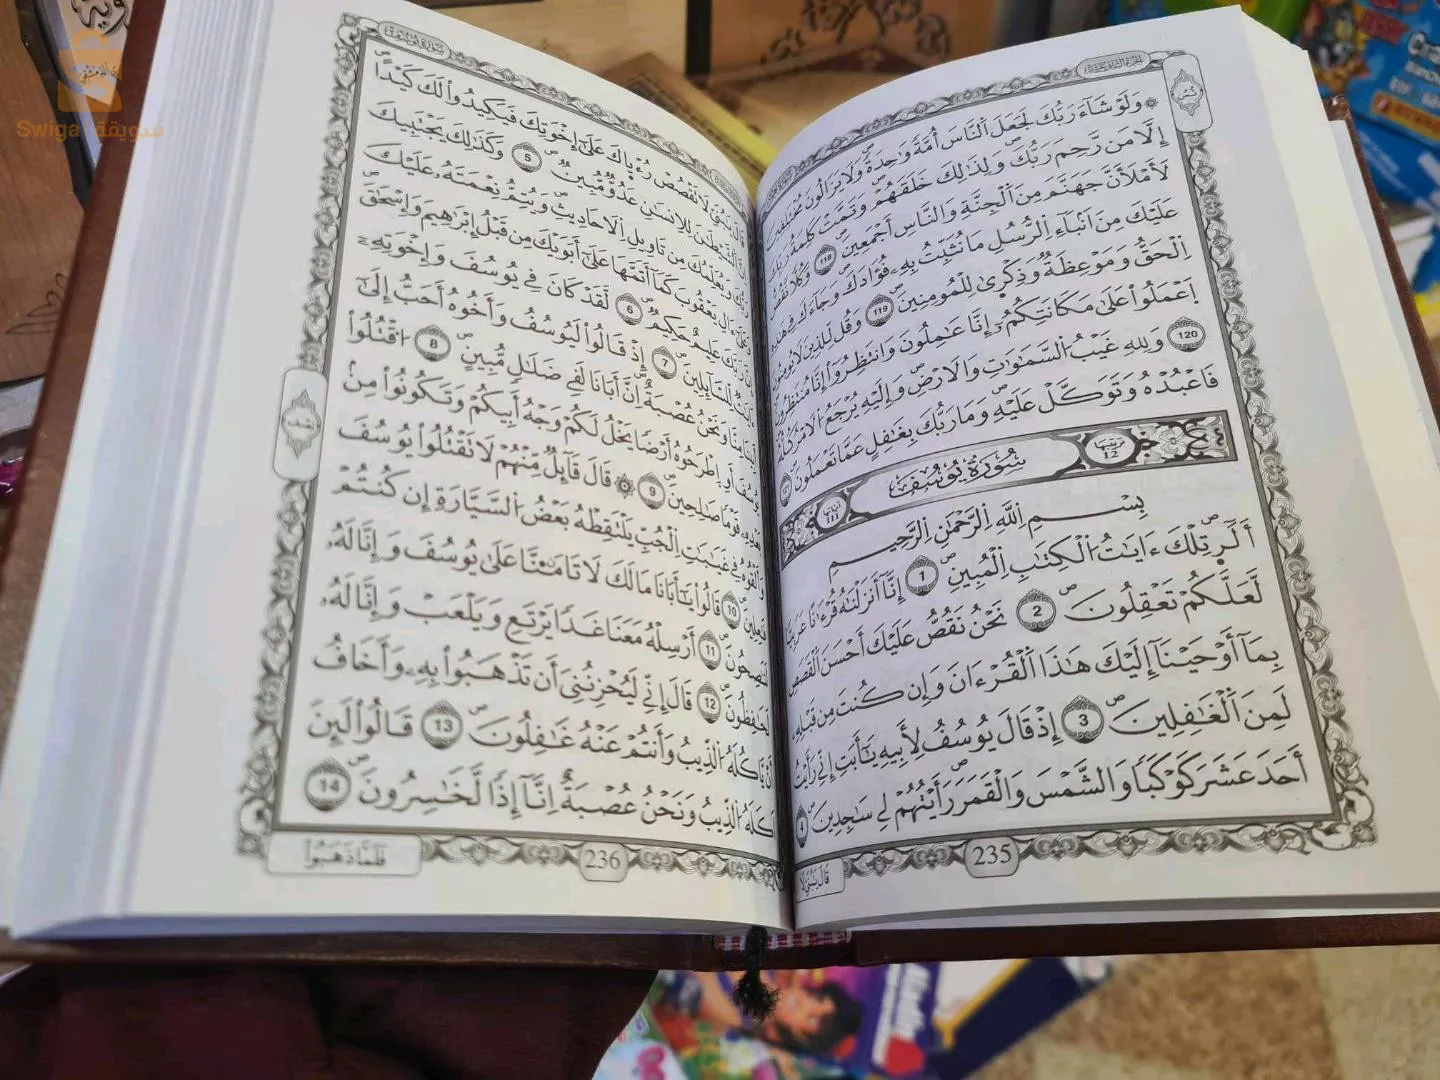 الجزء الثاني عشر
ثمن
۞ وَلَوْ شَآءَ رَبُّكَ لَجَعَلَ اَلنَّاسَ أُمَّةً وَاحِدَةً وَلَا يَزَالُونَ مُخْتَلِفِينَ
إِلَّا مَن رَّحِمَ رَبُّكَ وَلِذَٰلِكَ خَلَقَهُمْ وَتَمَّتْ كَلِمَةُ رَبِّكَ
لَأَمْلَأَنَّ جَهَنَّمَ مِنَ اَلْجِنَّةِ وَالنَّاسِ أَجْمَعِينَ 118 وَكُلّاً نَّقُصُّ
عَلَيْكَ مِنَ اَنۢبَآءِ اِلرُّسُلِ مَا نُثَبِّتُ بِهِۦ فُؤَادَكَ وَجَآءَكَ فِي هَٰذِهِ
اِلْحَقُّ وَمَوْعِظَةٌ وَذِكْرَىٰ لِلْمُومِنِينَ 119 وَقُل لِّلذِينَ لَا يُومِنُونَ
اَعْمَلُواْ عَلَىٰ مَكَانَتِكُمُۥٓ إِنَّا عَٰمِلُونَ وَانتَظِرُوٓاْ إِنَّا مُنتَظِرُونَ
120 وَلِلهِ غَيْبُ اُلسَّمَٰوَٰتِ وَالَارْضِ وَإِلَيْهِ يُرْجَعُ اُلَامْرُ كُلُّهُۥ
فَاعْبُدْهُ وَتَوَكَّلْ عَلَيْهِ وَمَا رَبُّكَ بِغَٰفِلٍ عَمَّا تَعْمَلُونَ
ترتيبها 12 سُورَةُ يُوسُفَ آياتها 111
بِسْمِ اِللَّهِ اِلرَّحْمَٰنِ اِلرَّحِيمِ
أَلَٓرٰ تِلْكَ ءَايَٰتُ اُلْكِتَٰبِ اِلْمُبِينِ 1 إِنَّآ أَنزَلْنَٰهُ قُرْءَٰناً عَرَبِيّاً
لَّعَلَّكُمْ تَعْقِلُونَ 2 نَحْنُ نَقُصُّ عَلَيْكَ أَحْسَنَ اَلْقَصَصِ
بِمَآ أَوْحَيْنَآ إِلَيْكَ هَٰذَا اَلْقُرْءَانَ وَإِن كُنتَ مِن قَبْلِهِۦ
لَمِنَ اَلْغَٰفِلِينَ 3 إِذْ قَالَ يُوسُفُ لِأَبِيهِ يَٰٓأَبَتِ إِنِّي رَأَيْتُ
أَحَدَ عَشَرَ كَوْكَباً وَالشَّمْسَ وَالْقَمَرَ رَأَيْتُهُمْ لِي سَٰجِدِينَ 4
قَالَ يَٰبُنَيِّ لَا
235
سورة يوسف
قَالَ يَٰبُنَيِّ لَا تَقْصُصْ رُءْيَاكَ عَلَىٰٓ إِخْوَتِكَ فَيَكِيدُواْ لَكَ كَيْداً
إِنَّ اَلشَّيْطَٰنَ لِلِانسَٰنِ عَدُوٌّ مُّبِينٌ 5 وَكَذَٰلِكَ يَجْتَبِيكَ
رَبُّكَ وَيُعَلِّمُكَ مِن تَاوِيلِ اِلَاحَادِيثِ وَيُتِمُّ نِعْمَتَهُۥ عَلَيْكَ
وَعَلَىٰٓ ءَالِ يَعْقُوبَ كَمَآ أَتَمَّهَا عَلَىٰٓ أَبَوَيْكَ مِن قَبْلُ إِبْرَٰهِيمَ وَإِسْحَٰقَ
إِنَّ رَبَّكَ عَلِيمٌ حَكِيمٌ 6 لَّقَدْ كَانَ فِي يُوسُفَ وَإِخْوَتِهِۦٓ
ءَايَٰتٌ لِّلسَّآئِلِينَ 7 إِذْ قَالُواْ لَيُوسُفُ وَأَخُوهُ أَحَبُّ إِلَىٰٓ
أَبِينَا مِنَّا وَنَحْنُ عُصْبَةٌ اِنَّ أَبَانَا لَفِي ضَلَٰلٍ مُّبِينٍ 8 اُقْتُلُواْ
يُوسُفَ أَوِ اِطْرَحُوهُ أَرْضاً يَخْلُ لَكُمْ وَجْهُ أَبِيكُمْ وَتَكُونُواْ مِنۢ
بَعْدِهِۦ قَوْماً صَٰلِحِينَ 9 ۞ قَالَ قَآئِلٌ مِّنْهُمْ لَا تَقْتُلُواْ يُوسُفَ
وَأَلْقُوهُ فِي غَيَٰبَٰتِ اِلْجُبِّ يَلْتَقِطْهُ بَعْضُ اُلسَّيَّارَةِ إِن كُنتُمْ
فَٰعِلِينَ 10 قَالُواْ يَٰٓأَبَانَا مَا لَكَ لَا تَامَ۬نَّا عَلَىٰ يُوسُفَ وَإِنَّا لَهُۥ
لَنَٰصِحُونَ 11 أَرْسِلْهُ مَعَنَا غَداً يَرْتَعِ وَيَلْعَبْ وَإِنَّا لَهُۥ
لَحَٰفِظُونَ 12 قَالَ إِنِّي لَيُحْزِنُنِيَ أَن تَذْهَبُواْ بِهِۦ وَأَخَافُ
أَنْ يَّاكُلَهُ اُلذِّيبُ وَأَنتُمْ عَنْهُ غَٰفِلُونَ 13 قَالُواْ لَئِنَ
اَكَلَهُ اُلذِّيبُ وَنَحْنُ عُصْبَةٌ اِنَّآ إِذاً لَّخَٰسِرُونَ 14
ثمن
فَلَمَّا ذَهَبُواْ
236
Swiga سويقة